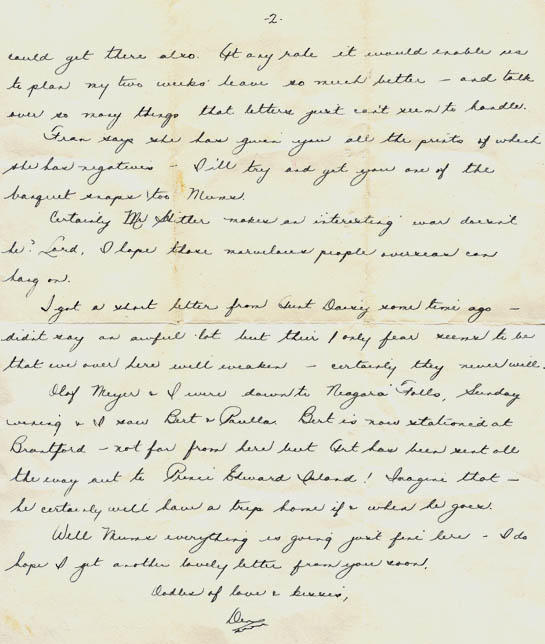 -2-
could get there also. At any rate it would enable us
to plan my two weeks' leave so much better - and talk
over so many things that letters just can't seem to handle.
Fran says she has given you all the prints of which
she has negatives - I'll try and get you one of the
banquet snaps too Mums.
Certainly Mr Hitler makes an interesting war doesn't
he? Lord, I hope those marvelous people overseas can
hang on.
I got a short letter from Aunt Daisy some time ago -
didn't say an awful lot but their only fear seems to be
that we over here will weaken - certainly they never will.
Olaf Meyer & I were down to Niagara Falls, Sunday
evening & I saw Bert & Paulla. Bert is now stationed at
Brantford - not far from here but Art has been sent all
the way out to Prince Edward Island! Imagine that -
he certainly will have a trip home if & when he goes.
Well Mums everything is going just fine here - I do
hope I get another lovely letter from you soon.
Oodles of love & kisses,